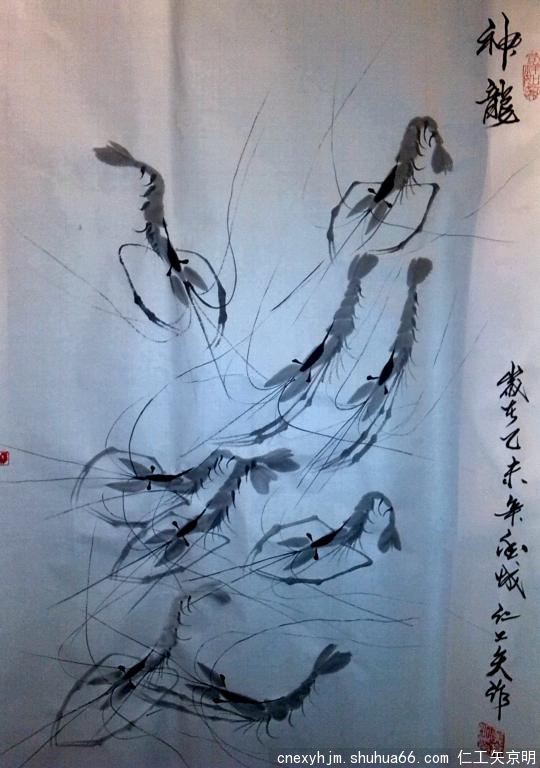 神龍
歲在乙未年城仁工矢作
cnexyhjm.shuhua66.com 仁工矢京明